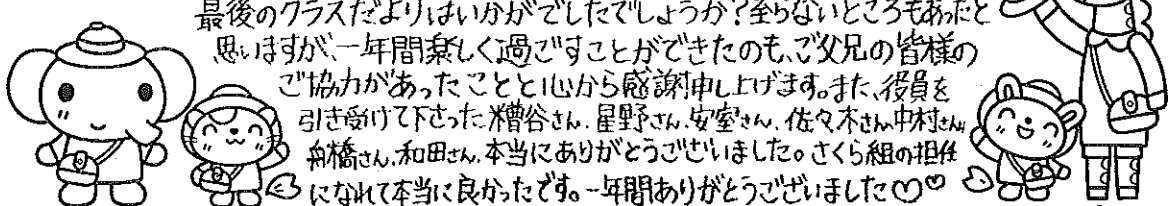 最後のクラスだよりはいかがでしたでしょうか？至らないところもあったと
思いますが、一年間楽しく過ごすことができたのも、ご父兄の皆様の
ご協力があったことと心から感謝申し上げます。また、役員を
引き受けて下さった糟谷さん、星野さん、安室さん、佐々木さん、中村さん、
舟橋さん、和田さん、本当にありがとうございました。さくら組の担任
になれて本当に良かったです。一年間ありがとうございました♡♡